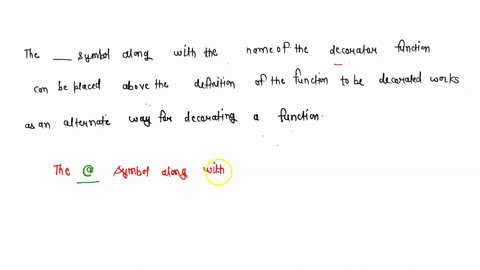 The ___ symbol along with the name of the decorator function
can be placed above the definition of the function to be decorated works
as an alternate way for decorating a function.
The @ symbol along with